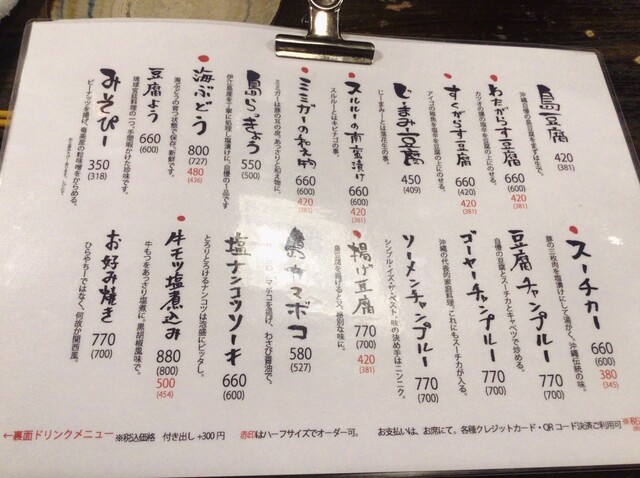 島豆腐
沖縄自慢の島豆腐をまずは生で。
420
(381)
わたがらす豆腐
カツオの腸の塩辛を豆腐の上にのせる。
660
(600)
420
(381)
すくがらす豆腐
アイゴの稚魚を塩辛を豆腐の上にのせる。
660
(420)
420
(381)
じーまみ豆腐
じーまみーとは落花生の事。
450
(409)
スルルーの南蛮漬け
スルルーとはキビナゴの事。
660
(600)
420
(381)
ミミガーの和え物
ミミガーは豚の耳の皮。あっさりと和え物に。
660
(600)
420
(381)
島らっきょう
伊江島産を丁寧に処理し塩漬けに。自慢の一品です
550
(500)
海ぶどう
海ぶどうの育つ状態で保存。新鮮です。
800
(727)
480
(436)
豆腐よう
琉球宮廷料理の一つ。手間暇かけた珍味です。
660
(600)
みそぴー
ピーナッツを揚げ、奄美産の粒味噌をからめる。
350
(318)
スーチカー
豚の三枚肉を塩漬けにして湯がく。沖縄伝統の味。
660
(600)
380
(345)
豆腐チャンプルー
自慢の豆腐とスーチカとキャベツで炒める。
770
(700)
ゴーヤーチャンプルー
沖縄の代表的家庭料理。これにもスーチカが入る。
770
(700)
ソーメンチャンプルー
シンプル・イズ・ザ・ベスト。味の決め手はニンニク。
770
(700)
揚げ豆腐
島豆腐を揚げるとス、絶別な味に。
770
(700)
420
(381)
島カマボコ
マチコを揚げ、わさび醤油で。
580
(527)
塩ナンコツソーキ
とろりとろけるナンコツは泡盛にピッタシ。
660
(600)
牛モツ塩煮込み
牛もつをあっさり塩煮に。黒胡椒風味で。
880
(800)
500
(454)
お好み焼き
ひらやちーではなく、何故か関西風。
770
(700)
←裏面ドリンクメニュー ※税込価格 付き出し +300円 赤印はハーフサイズでオーダー可。 お支払いは、お席にて。各種クレジットカード・QRコード決済ご利用可